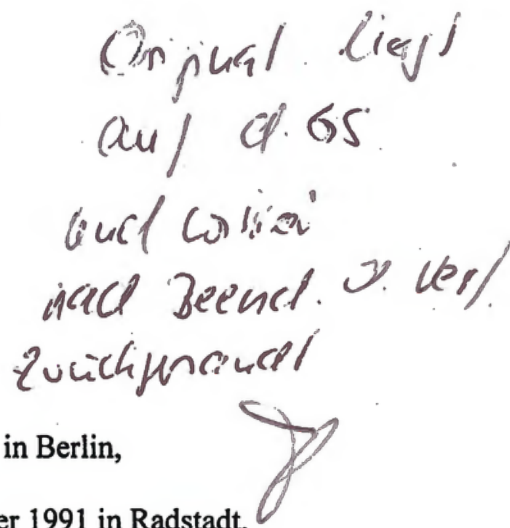 Original liegt
auf d. GS
und wird
nach Beend. d. Verf.
zurückgesandt
in Berlin,
er 1991 in Radstadt,